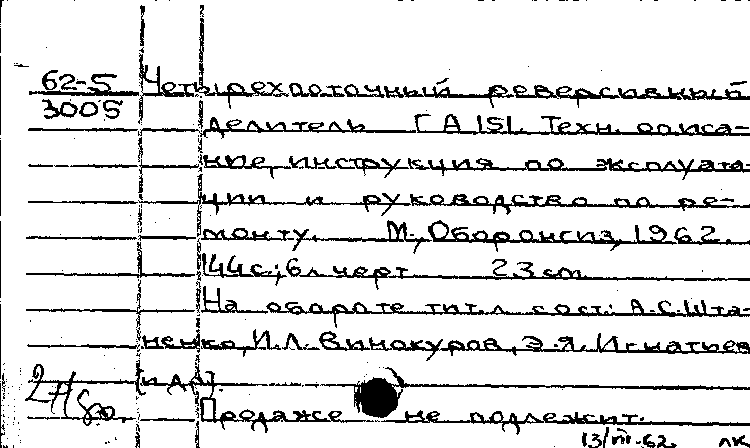 62-5 Четырехпоточный реверсивный
3005
делитель ГА 151. Техн. описа-
ние, инструкция по эксплуата-
ции и руководство по ре-
монту. М., Оборонгиз, 1962.
144 с.; 6 л черт 23 cm
На обороте тит. л сост: А.С. Шта-
ненко, И.Л. Винокуров, Э.Я. Игнатьев
[и др].
Продаже не подлежит.
13/VII-62 лк